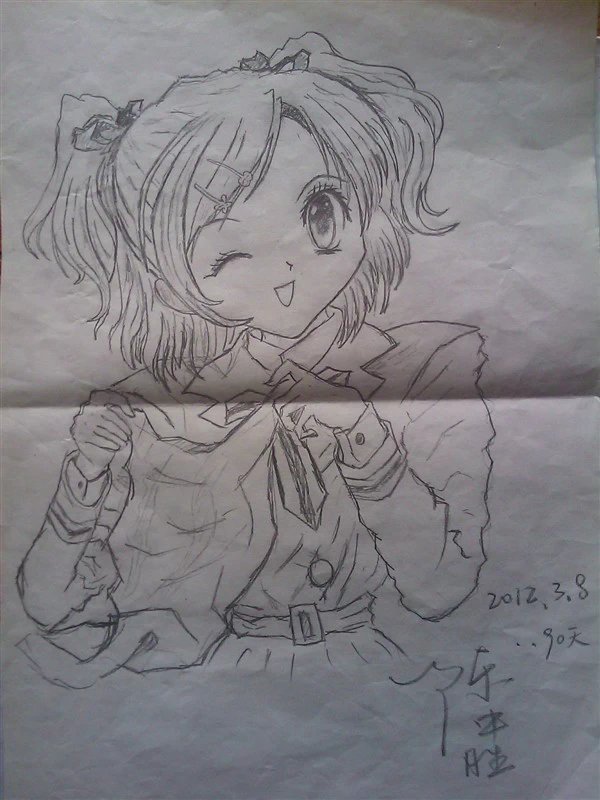 2012.3.8
..90天
陈中胜